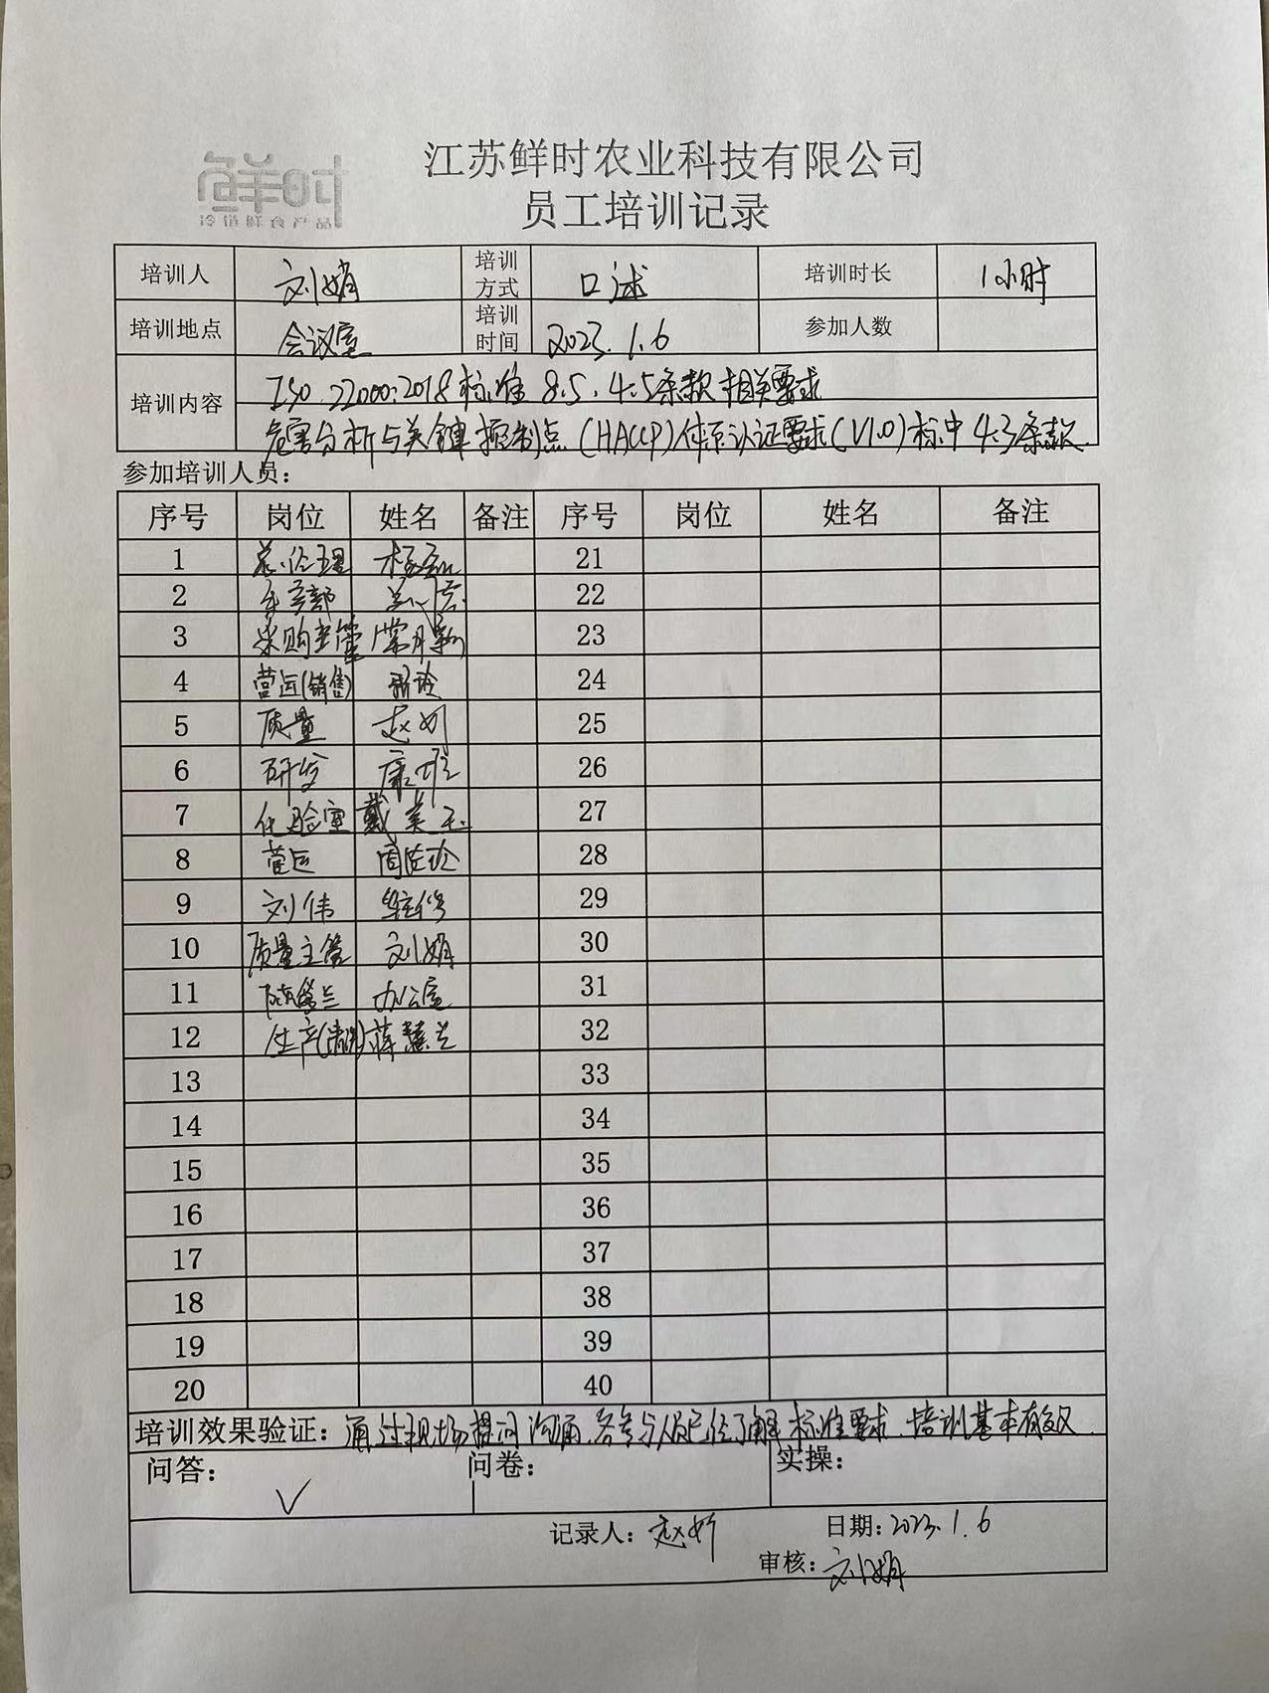 鲜时
江苏鲜时农业科技有限公司
员工培训记录
培训人 刘娟 培训方式 口述 培训时长 1小时
培训地点 会议室 培训时间 2023.1.6 参加人数
培训内容 ISO 22000:2018标准 8.5.4.5条款相关要求
危害分析与关键控制点(HACCP)体系认证要求(V1.0)标中4.3条款
参加培训人员:
序号 岗位 姓名 备注 序号 岗位 姓名 备注
1 总经理 21
2 22
3 采购主管 23
4 营运(销售) 24
5 质量 赵妍 25
6 研发 26
7 化验室 戴美玉 27
8 营运 28
9 刘伟 29
10 质量主管 刘娟 30
11 办公室 31
12 生产 蒋慧兰 32
13 33
14 34
15 35
16 36
17 37
18 38
19 39
20 40
培训效果验证: 通过现场提问沟通,各参与人员已经了解标准要求,培训基本有效.
问答: ✓ 问卷: 实操:
记录人: 赵妍 日期: 2023.1.6
审核: 刘娟